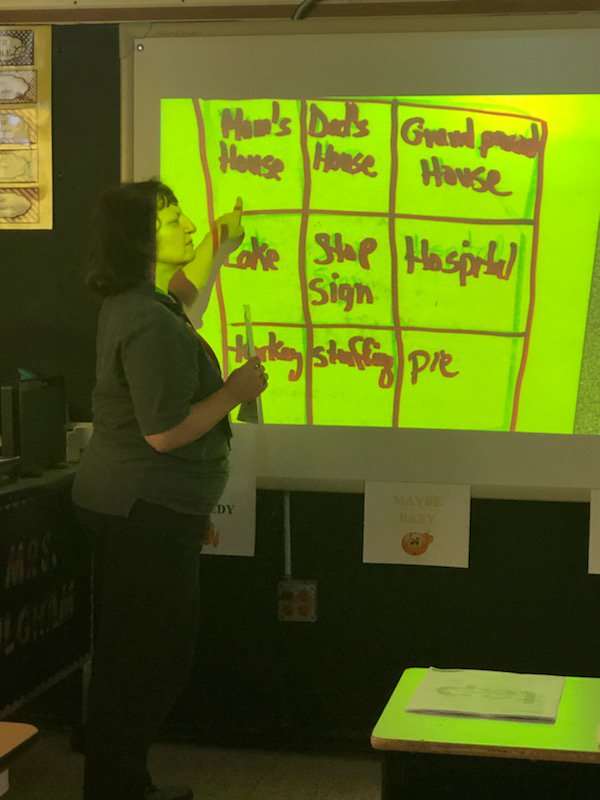 Mom's
House
Dad's
House
Grand
House
Lake
Stop
Sign
Hospital
Turkey
stuffing
pie
MAYBE
MRS.